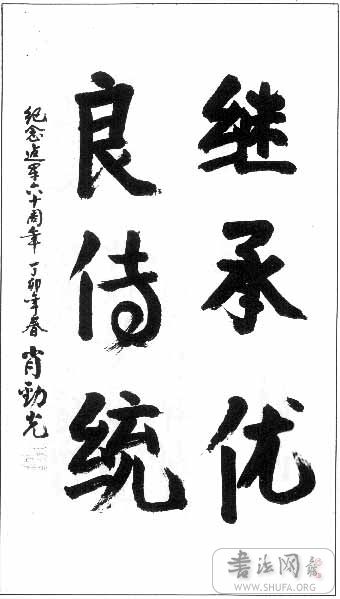 继承优
良传统
纪念建军六十周年 丁卯年春 肖劲光
書法网
WWW.SHUFA.ORG